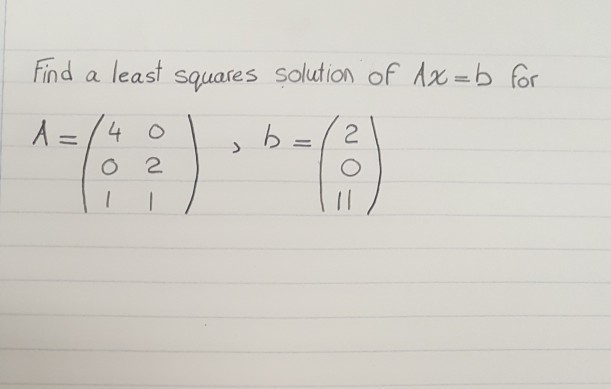 Find a least squares solution of Ax=b for
A = (4 0 , b = (2
0 2 0
1 1) 11)